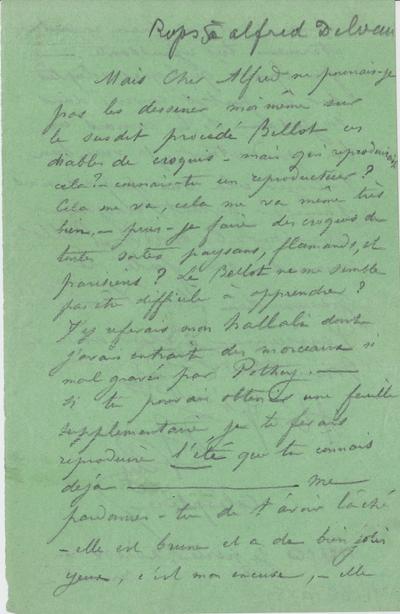 Rops à Alfred Delvau
Mais Cher Alfred ne pourrais-je
pas les dessiner moi même sur
le susdit procédé Bellot ces
diables de croquis - mais qui reproduirait
cela? - connais-tu un reproducteur?
Cela me va, cela me va même très
bien, - puis-je faire des croquis de
toutes sortes paysans, flamands, et
parisiens? Le Bellot ne me semble
pas être difficile à apprendre?
J'y referais mon hallali dont
j'avais extrait des morceaux si
mal gravés par Pothey. -
Si tu pouvais obtenir une feuille
supplémentaire je te ferais
reproduire l'été que tu connais
déjà - me
pardonnes-tu de t'avoir lâché
- elle est brune et a de bien jolis
yeux, c'est mon excuse, - elle